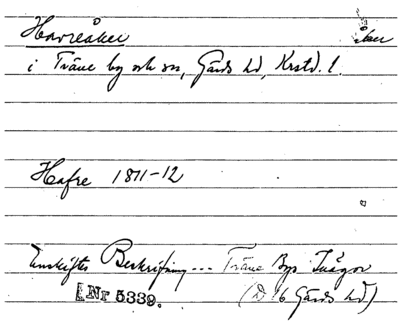 Havreåker åker
i Träne by och sn, Gärds hd, Krstd. l.
Hafre 1811-12
Enskiftes Beskrifning... Träne Bys Inägor
Nr 5339. (D 16 Gärds hd)